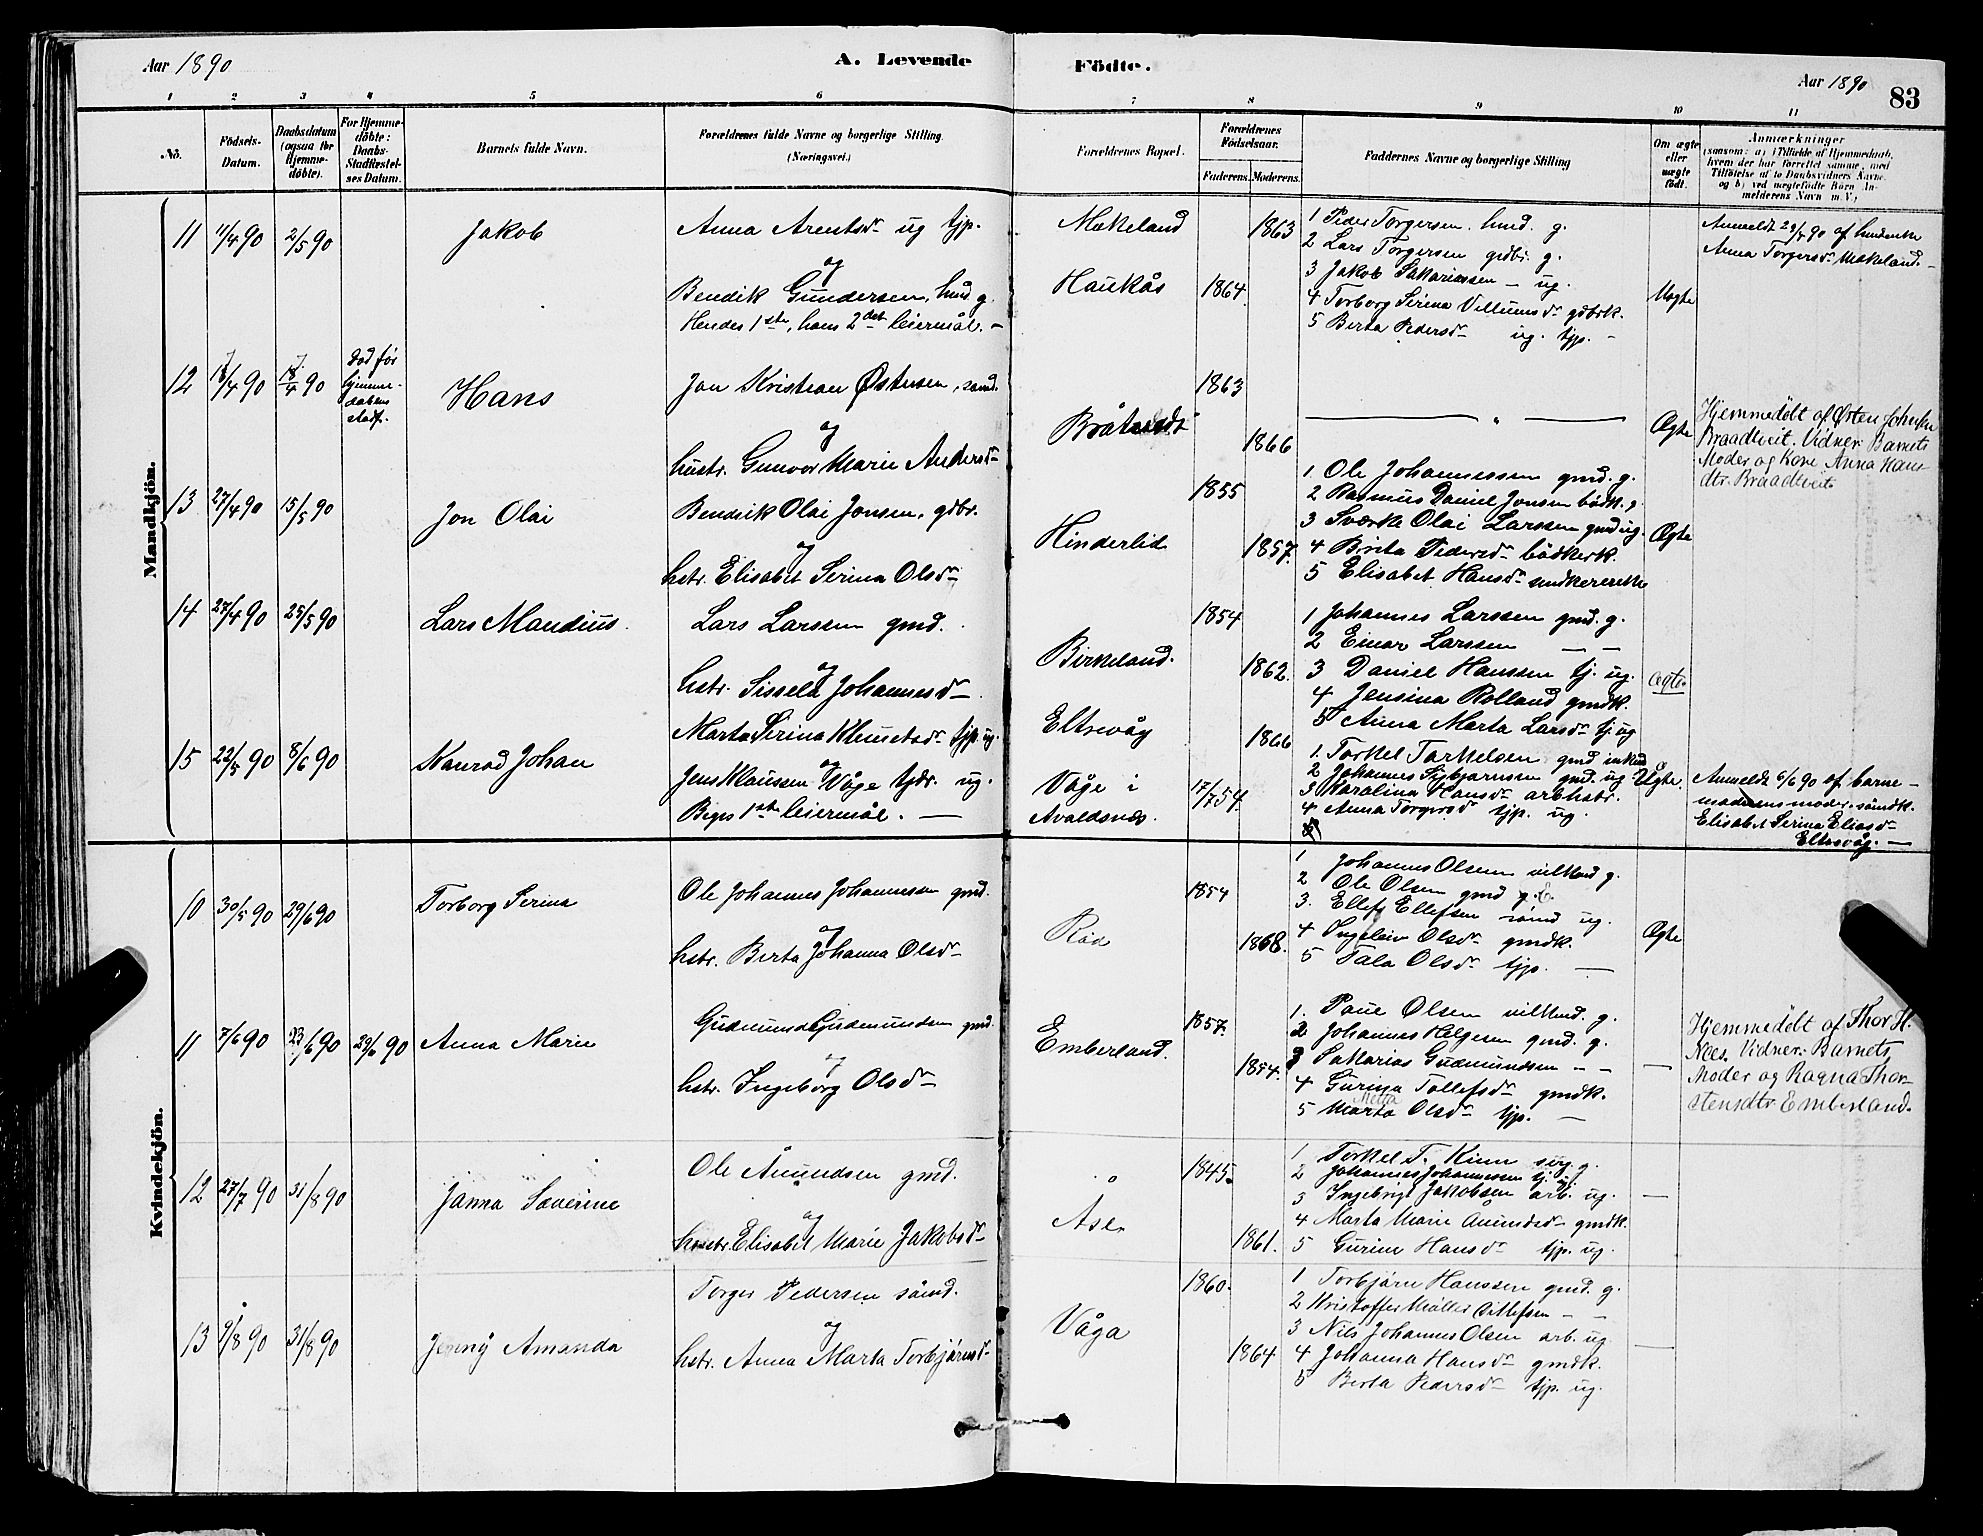 Aar 1890
A. Levende
Födte.
Aar 1890
83
1 2 3 4 5 6 7 8 9 10 11
No.
Födsels-Datum.
Daabsdatum (ogsaa for Hjemmedöbte).
For Hjemmedöbte: Daabs-Stadfæstelses Datum.
Barnets fulde Navn.
Forældrenes fulde Navne og borgerlige Stilling. (Næringsvei.)
Forældrenes Bopæl.
Forældrenes Födselsaar.
Faderens. Moderens.
Faddernes Navne og borgerlige Stilling
Om ægte eller uægte födt.
Anmærkninger
(saasom: a) i Tilfælde af Hjemmedaab, hvem der har forrettet samme, med Tilföielse af to Daabsvidners Navne og b) ved uægtefödte Börn Anmelderens Navn m. V.)
Mandkjön.
11 11/4 90 2/5 90 Jakob
Anna Arentsdr ug tjp.
og
Bendik Gundersen, husd g.
Hendes 1ste, hans 2det leiermål. –
Mækeland 1863
Haukås 1864
1 Peder Torgersen husd. g.
2 Lars Torgersen grdbr. g.
3 Jakob Sakariassen – ug.
4 Torborg Serina Villumsdr gdbrk.
5 Berta Pedersdr ug. tjp. –
Uægte
Anmeldt 29/4 90 af husdenke
Anna Torgersdr Mækeland. –
12 18/4 90 18/4 90 død før
hjemme-
daabens
stadf.
Hans
Jon Kristian Østensen, sømd.
og
hustr. Gunvor Marie Andersdr
Bråtveit 1863
1866
— " —
Ægte
Hjemmedøbt af Østen Johnsen
Braadtveit. Vidner: Barnets
Moder og Kone Anna Hans
dtr. Braadtveit
13 27/4 90 15/5 90 Jon Olai
Bendik Olai Jonsen, gdbr.
og
hstr. Elisabet Serina Olsdr
Hinderlid 1855
1857.
1 Ole Johannessen gmd. g.
2 Rasmus Daniel Jonsen bødk. g.
3 Sværke Olai Larssen gmd ug.
4 Brita Pedersdr bødkerk.
5 Elisabet Hansdr
Ægte
14 27/4 90 25/5 90 Lars Mandius.
Lars Larssen gmd.
og
hstr. Sissela Johannesdr
Birkeland. 1854
1862.
1 Johannes Larssen gmd. g.
2 Einar Larssen — —
3 Daniel Hanssen tj. ug.
4 Jensina Rolland gmdk.
5 Anna Marta Larsdr tj ug
ægte.
15 22/5 90 8/6 90 Konrad Johan
Marta Serina Knutsdr tjp. ug.
og
Jens Klaussen Våge tjdr. ug.
Beges 1ste leiermål. —
Eltrevåg 1866
Våge i
Avaldsnes. 17/7 54.
1. Torkel Tarkelsen gmd
2 Johannes Sigbjørnsen gmd. ug
3 Karalina Hansdr arbhstr.
4 Anna Torgersdr tjp. ug.
5
Uægte.
Anmeldt 6/6 90 af barne-
moderens moder, sømdk.
Elisabet Serina Eliasdr
Eltrevåg. —
Kvindekjön.
10 30/5 90 29/6 90 Torborg Serina
Ole Johannes Johannessen gmd.
og
hstr. Berta Johanna Olsdr
Rød 1854
1868.
1 Johannes Olsen vilkmd g.
2 Ole Olsen gmd g.
3. Ellef Ellefsen sømd ug.
4 Ingeleiv Olsdr gmdk.
5 Tala Olsdr tjp. —
Ægte
11 7/6 90 23/6 90 29/6 90 Anna Marie
Gudmund Gudmundsen gmd.
og
hstr. Ingeborg Olsdr
Emberland. 1857.
1854.
1. Paul Olsen vilkmd. g.
2 Johannes Helgesen gmd. g.
3 Sakarias Gudmundsen – –
4 Gurina Tollefsdr gmdk.
Metta
5 Marta Olsdr tjp. —
—
Hjemmedøbt af Thor H.
Næs. Vidner: Barnets
Moder og Ragna Thor-
stensdtr. Emberland.
12 27/7 90 31/8 90 Janna Severine
Ole Åmundsen gmd.
og
hustr. Elisabet Marie Jakobsdr
Åse. 1845.
1861.
1 Torkel T. Kinn g.
2 Johannes Johannessen tj. ug.
3 Ingebrigt Jakobsen arb. ug.
4 Marta Marie Åmundsdr gmdk.
5 Gurine Hansdr tjp. ug.
—
13 9/8 90 31/8 90 Jenny Amanda
Torger Pedersen sømd.
og
hstr. Anna Marta Torbjørnsdr
Våga 1860.
1864.
1 Torbjørn Hanssen gmd. g.
2 Kristoffer Møller Ditlefsen – –
3 Nils Johannes Olsen arb. ug.
4 Johanna Hansdr gmdk.
5 Berta Pedersdr tjp. ug.
—